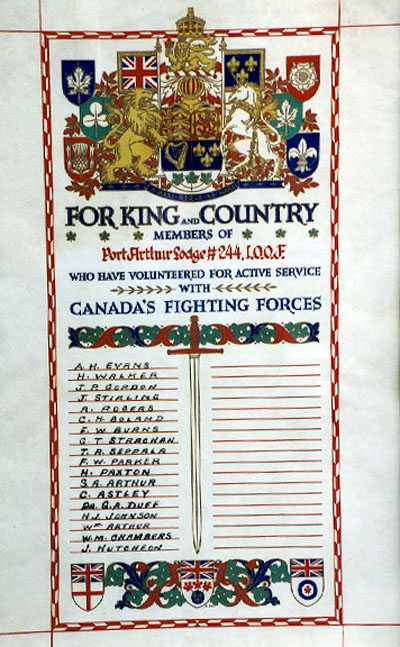 FOR KING AND COUNTRY
MEMBERS OF
Port Arthur Lodge #244, I.O.O.F.
WHO HAVE VOLUNTEERED FOR ACTIVE SERVICE
WITH
CANADA'S FIGHTING FORCES
A. H. EVANS
H. WALKER
J. P. GORDON
J. STIRLING
A. ROGERS
C. H. BOLAND
F. W. BURNS
G. T. STRACHAN
T. R. SEPPALA
F. W. PARKER
H. PAXTON
S. A. ARTHUR
C. ASTLEY
DR. G. A. DUFF
H. J. JOHNSON
WM. ARTHUR
W. M. CHAMBERS
J. HUTCHEON